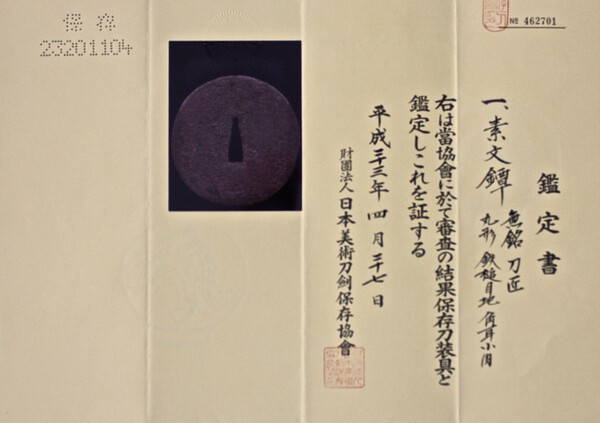 保存
23201104
№ 462701
鑑定書
一、素文鐔 無銘 刀匠
丸形 鉄槌目地 角耳小肉
右は當協會に於て審査の結果保存刀装具と
鑑定しこれを証する
平成二十三年 四月二十七日
財團法人日本美術刀劍保存協會